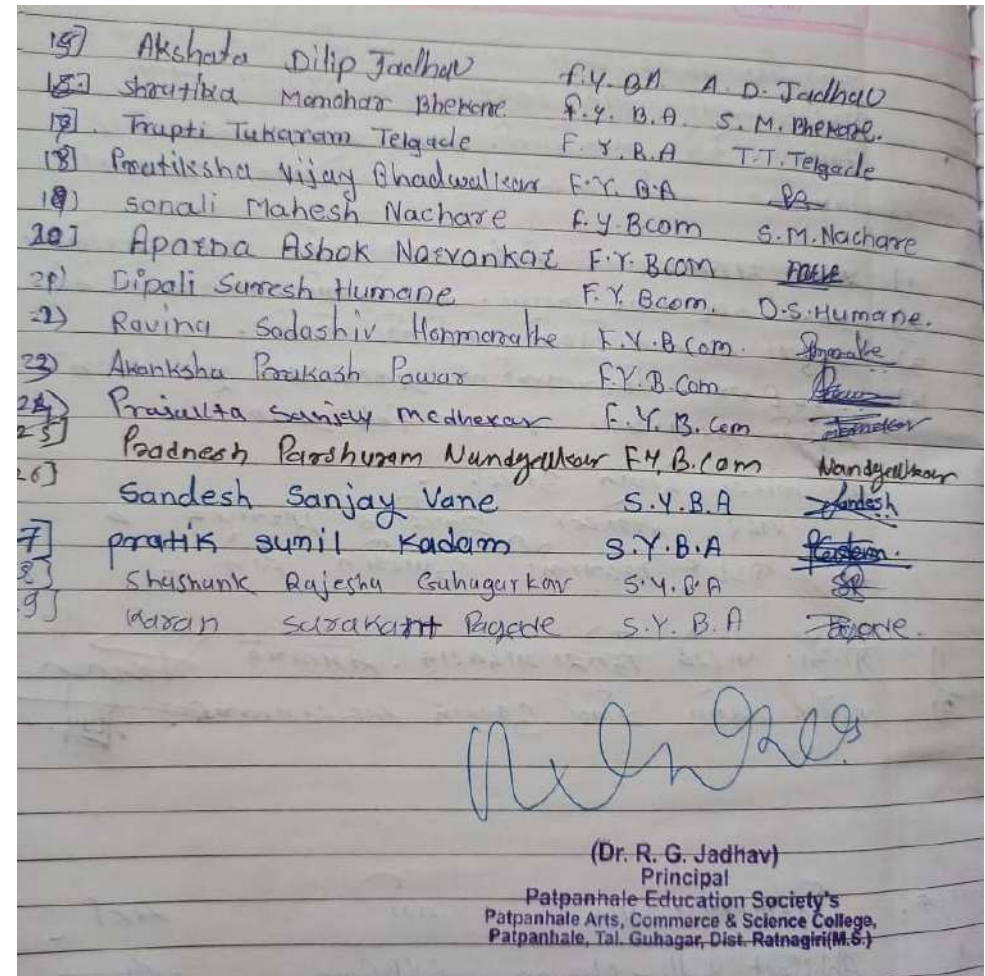 15] Akshata Dilip Jadhav F.Y. BA A. D. Jadhav
16] Shrutika Manohar Bhekare F.Y. B.A. S. M. Bhekare.
17] Trupti Tukaram Telgade F.Y.B.A T.T.Telgade
18] Pratiksha Vijay Bhadwalkar F.Y. B.A
19) Sonali Mahesh Nachare F.Y.Bcom S.M.Nachare
20] Aparna Ashok Narvankar F.Y. Bcom
21) Dipali Suresh Humane F.Y. Bcom. D.S.Humane.
22) Ravina Sadashiv Honmarathe F.Y.B com.
23) Akanksha Prakash Pawar F.Y.B.Com
24) Prajakta Sanjay Medhekar F.Y.B.Com
25] Pradnesh Parshuram Nandgaonkar F.Y.B.Com
26] Sandesh Sanjay Vane S.Y.B.A Sandesh
7] pratik sunil kadam S.Y.B.A
8] Shashank Rajesh Guhagarkar S.Y.B.A SR
9] Karan Surakant Pagade S.Y.B.A
(Dr. R. G. Jadhav)
Principal
Patpanhale Education Society's
Patpanhale Arts, Commerce & Science College,
Patpanhale, Tal. Guhagar, Dist. Ratnagiri(M.S.)